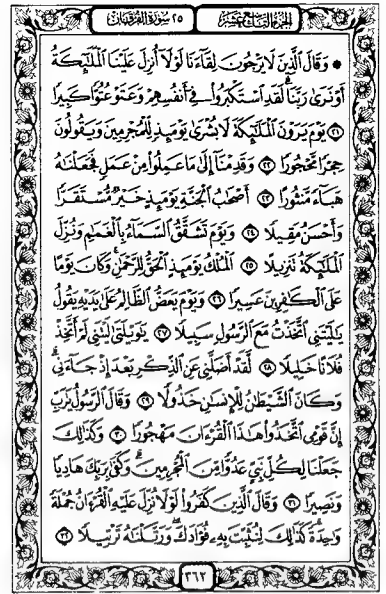 الجزء التاسع عشر
٢٥ سورة الفرقان
۞ وَقَالَ ٱلَّذِينَ لَا يَرۡجُونَ لِقَآءَنَا لَوۡلَآ أُنزِلَ عَلَيۡنَا ٱلۡمَلَٰٓئِكَةُ
أَوۡ نَرَىٰ رَبَّنَاۗ لَقَدِ ٱسۡتَكۡبَرُواْ فِيٓ أَنفُسِهِمۡ وَعَتَوۡ عُتُوّٗا كَبِيرٗا
٢١ يَوۡمَ يَرَوۡنَ ٱلۡمَلَٰٓئِكَةَ لَا بُشۡرَىٰ يَوۡمَئِذٖ لِّلۡمُجۡرِمِينَ وَيَقُولُونَ
حِجۡرٗا مَّحۡجُورٗا ٢٢ وَقَدِمۡنَآ إِلَىٰ مَا عَمِلُواْ مِنۡ عَمَلٖ فَجَعَلۡنَٰهُ
هَبَآءٗ مَّنثُورًا ٢٣ أَصۡحَٰبُ ٱلۡجَنَّةِ يَوۡمَئِذٍ خَيۡرٞ مُّسۡتَقَرّٗا
وَأَحۡسَنُ مَقِيلٗا ٢٤ وَيَوۡمَ تَشَقَّقُ ٱلسَّمَآءُ بِٱلۡغَمَٰمِ وَنُزِّلَ
ٱلۡمَلَٰٓئِكَةُ تَنزِيلًا ٢٥ ٱلۡمُلۡكُ يَوۡمَئِذٍ ٱلۡحَقُّ لِلرَّحۡمَٰنِۚ وَكَانَ يَوۡمًا
عَلَى ٱلۡكَٰفِرِينَ عَسِيرٗا ٢٦ وَيَوۡمَ يَعَضُّ ٱلظَّالِمُ عَلَىٰ يَدَيۡهِ يَقُولُ
يَٰلَيۡتَنِي ٱتَّخَذۡتُ مَعَ ٱلرَّسُولِ سَبِيلٗا ٢٧ يَٰوَيۡلَتَىٰ لَيۡتَنِي لَمۡ أَتَّخِذۡ
فُلَانًا خَلِيلٗا ٢٨ لَّقَدۡ أَضَلَّنِي عَنِ ٱلذِّكۡرِ بَعۡدَ إِذۡ جَآءَنِيۗ
وَكَانَ ٱلشَّيۡطَٰنُ لِلۡإِنسَٰنِ خَذُولٗا ٢٩ وَقَالَ ٱلرَّسُولُ يَٰرَبِّ
إِنَّ قَوۡمِي ٱتَّخَذُواْ هَٰذَا ٱلۡقُرۡءَانَ مَهۡجُورٗا ٣٠ وَكَذَٰلِكَ
جَعَلۡنَا لِكُلِّ نَبِيٍّ عَدُوّٗا مِّنَ ٱلۡمُجۡرِمِينَۗ وَكَفَىٰ بِرَبِّكَ هَادِيٗا
وَنَصِيرٗا ٣١ وَقَالَ ٱلَّذِينَ كَفَرُواْ لَوۡلَا نُزِّلَ عَلَيۡهِ ٱلۡقُرۡءَانُ جُمۡلَةٗ
وَٰحِدَةٗۚ كَذَٰلِكَ لِنُثَبِّتَ بِهِۦ فُؤَادَكَۖ وَرَتَّلۡنَٰهُ تَرۡتِيلٗا ٣٢
٣٦٢